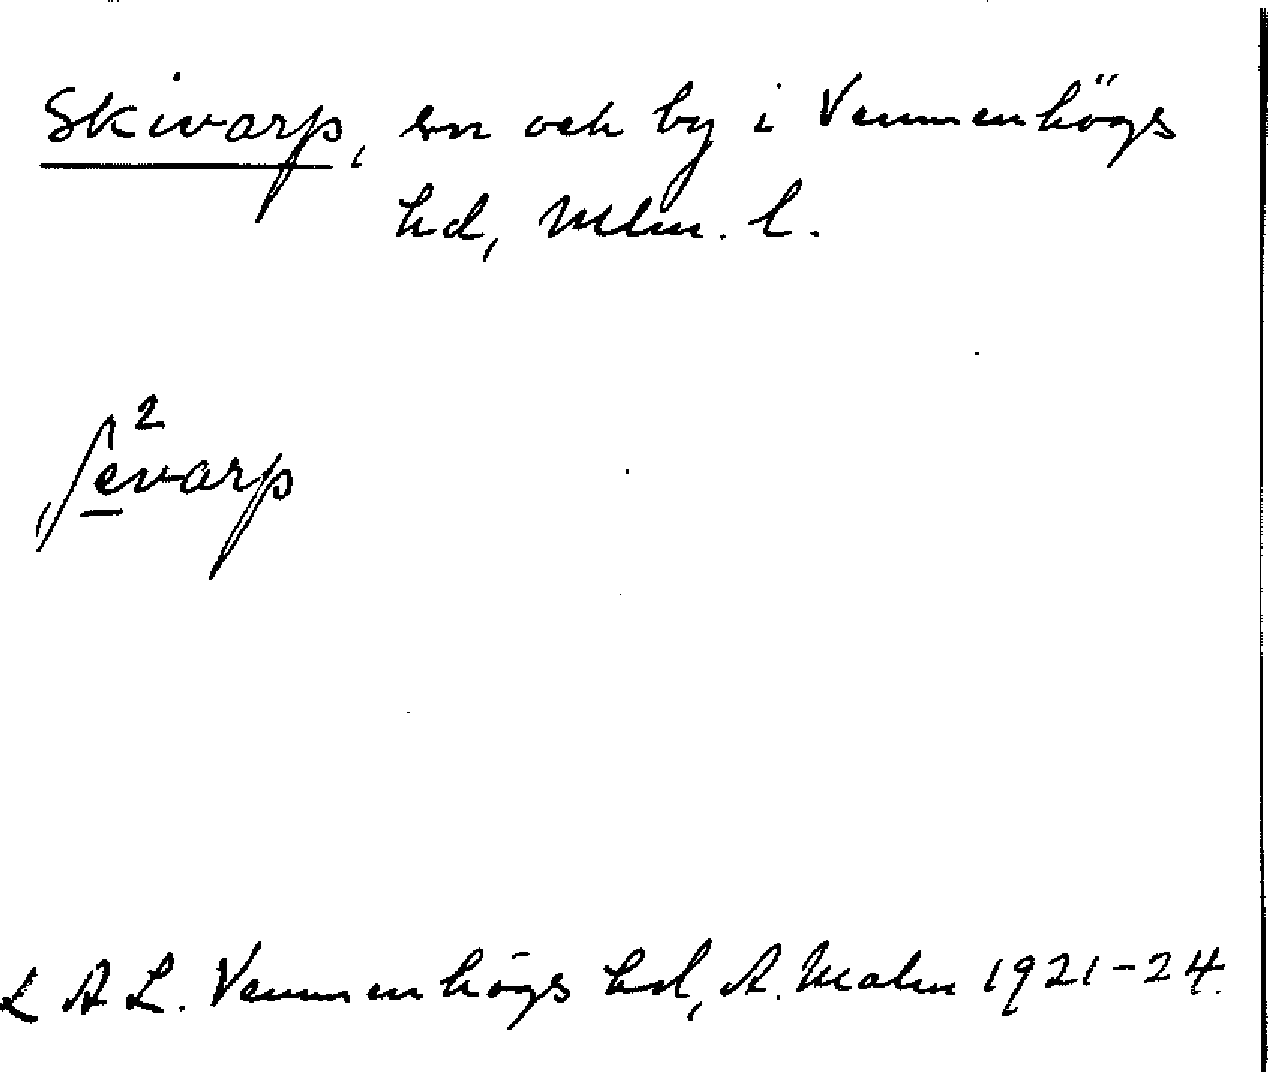 Skivarp, sn och by i Vemmenhögs
hd, Mlm. l.
2
ʃevarp
L A L. Vemmenhögs hd, A. Malm 1921-24.